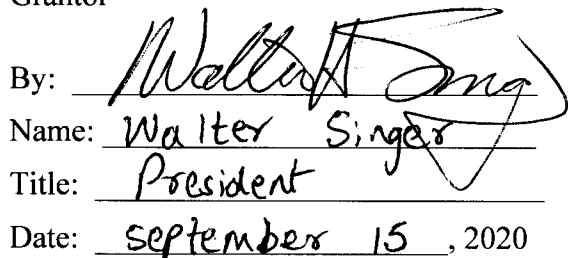 Grantor
By: Walter Sing
Name: Walter Singer
Title: President
Date: September 15, 2020